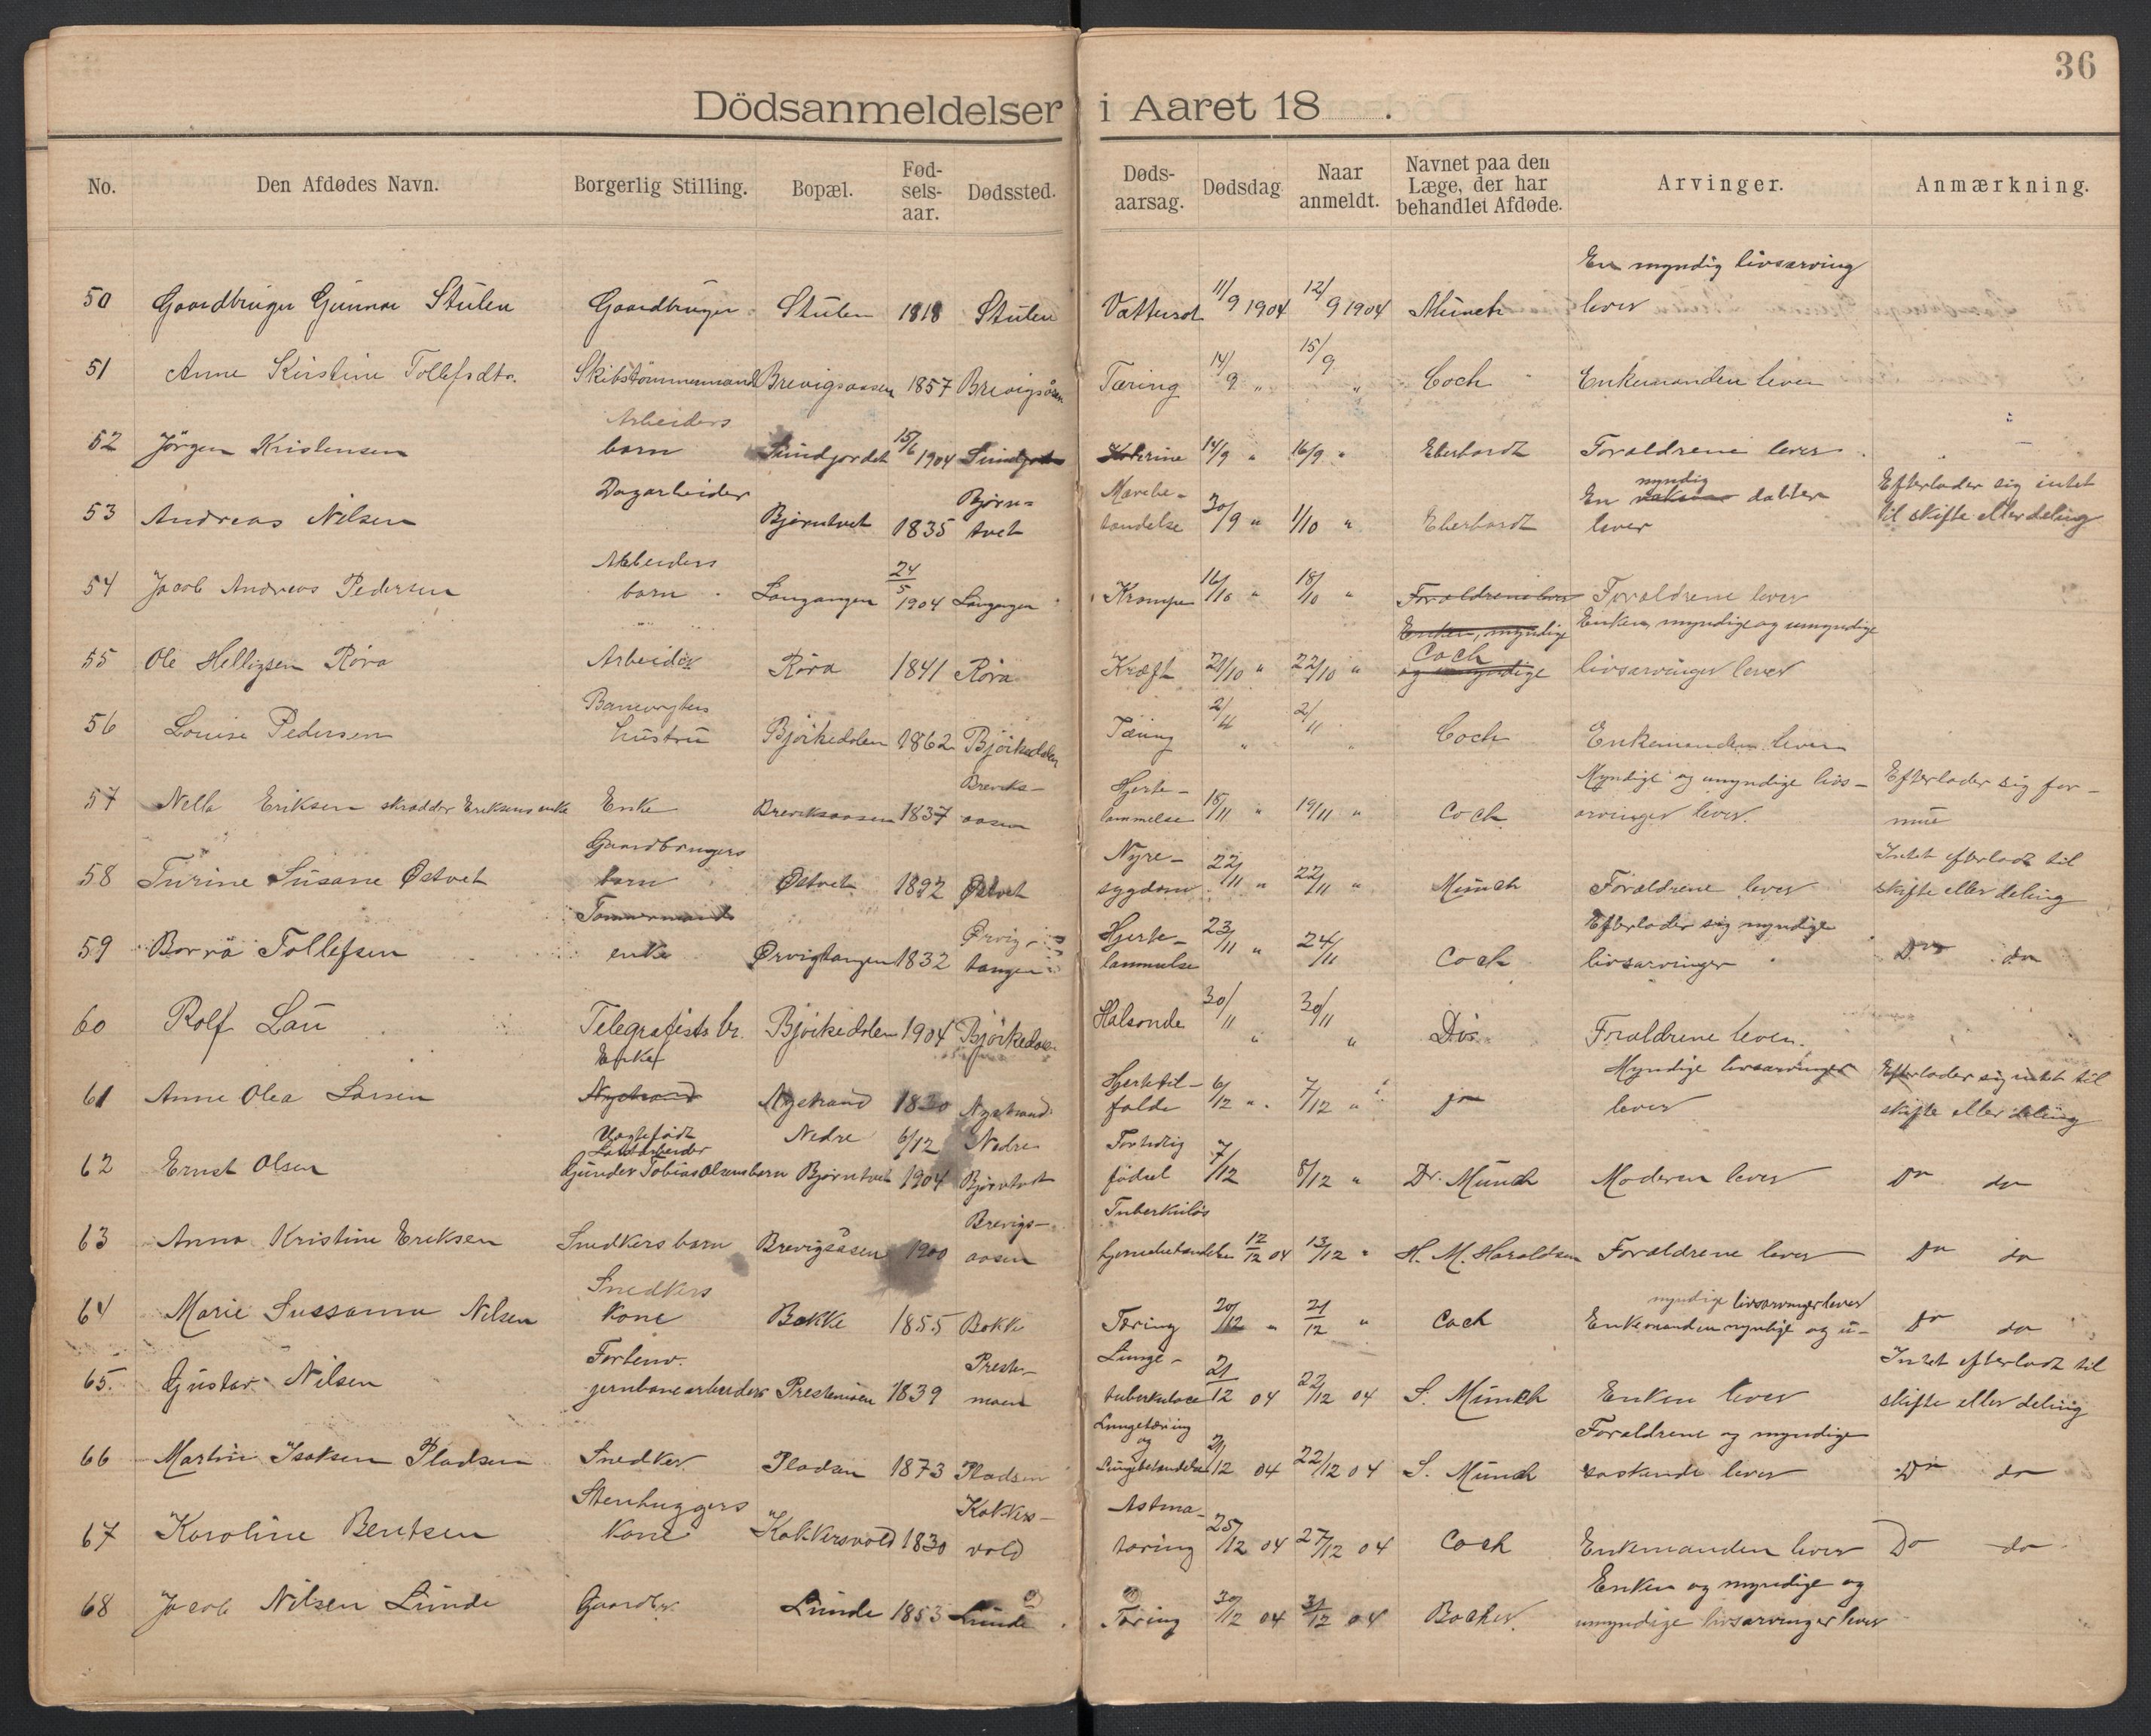 36
Dödsanmeldelser i Aaret 18 .
No. Den Afdødes Navn. Borgerlig Stilling. Bopæl. Fød-sels-aar. Dødssted. Døds-aarsag. Dødsdag Naar anmeldt. Navnet paa den Læge, der har behandlet Afdøde. Arvinger. Anmærkning.
En myndig livsarving
50 Gaardbruger Gunnar Stulen Gaardbruger Stulen 1818 Stulen Vattersot 11/9 1904 12/9 1904 Münch lever
51 Anne Kirstine Tollefsdtr. Skibstömmermand Brevigsaasen 1857 Brevigsåsen Tæring 14/9 " 15/9 " Coch Enkemanden lever
Arbeiders
52 Jörgen Kristensen barn Sundjordet 15/6 1904 Sundjordet Kolerine 14/9 " 16/9 " Eberhardt Forældrene lever
Dagarbeider Bjørn= Marvbe- myndig Efterlader sig intet
53 Andreas Nilsen Bjørntvet 1835 tvet tændelse 30/9 " 1/10 " Eberhardt En voksen datter lever til skifte eller deling
Arbeiders 24/5
54 Jacob Andreas Pedersen barn Langangen 1904 Langangen Krampe 16/10 " 18/10 " Forældrene lever Forældrene lever
Enken, myndige Enken, myndige og umyndige
55 Ole Helligsen Röra Arbeider Röra 1841 Röra Kræft 21/10 " 22/10 " Coch og umyndige livsarvinger lever
Banevogters
56 Louise Pedersen hustru Björkedalen 1862 Björkedalen Tæring 2/11 " 2/11 " Coch Enkemanden lever
Breviks- Hjerte- Myndige og umyndige livs- Efterlader sig for-
57 Nella Eriksen skrædder Eriksens enke Enke Breviksaasen 1837 aasen lammelse 18/11 " 19/11 " Coch arvinger lever. mue
Gaardbrugers Nyre- Intet efterladt til
58 Turine Susane Østvet barn Østvet 1892 Østvet sygdom 22/11 " 22/11 " Münch Forældrene lever skifte eller deling
Tømmermands Ørvig- Hjerte- Efterlader sig myndige
59 Borrö Tollefsen enke Ørvigtangen 1832 tangen lammelse 23/11 " 24/11 Coch livsarvinger Do do
60 Rolf Lau Telegrafists br. Björkedalen 1904 Björkedalen Halsonde 30/11 " 30/11 " Do Forældrene lever.
Enke Hjertetil- Myndige livsarvinger Efterlader sig intet til
61 Anne Olea Larsen Nystrand Nystrand 1830 Nystrand falde 6/12 " 7/12 " do lever skifte eller deling
Uægtefødt Løstarbeider Nedre 6/12 Nedre Fortidlig
62 Ernst Olsen Gunder Tobias Olsens barn Bjørntvet 1904 Bjørntvet födsel 7/12 8/12 " Dr. Münch Moderen lever Do do
Brevigs- Tuberkuløs
63 Anna Kristine Eriksen Snedkers barn Brevigsåsen 1900 aasen hjernebetændelse 12/12 04 13/12 " H. M. Haraldsen Forældrene lever Do do
Snedkers myndige livsarvinger lever
64 Marie Sussanna Nilsen Kone Bakke 1855 Bakke Tæring 20/12 " 21/12 " Coch Enkemanden myndige og u- Do do
Forhenv. Preste- Lunge- Intet efterladt til
65. Gustav Nilsen jernbanearbeider Prestemoen 1839 moen tuberkulose 21/12 04 22/12 04 S. Münch Enken lever skifte eller deling
Lungetæring og Forældrene og myndige
66 Martin Isaksen Pladsen Snedker Pladsen 1873 Pladsen Lungebetændelse 21/12 04 22/12 04 S. Münch søskende lever Do do
Stenhuggers Kokkers- Astma-
67 Karoline Bentsen Kone Kokkersvold 1830 vold tæring 25/12 04 27/12 04 Coch Enkemanden lever Do do
Enken og myndige og
68 Jacob Nilsen Lunde Gaardbr. Lunde 1853 Lunde Tæring 30/12 04 31/12 04 Backer umyndige livsarvinger lever